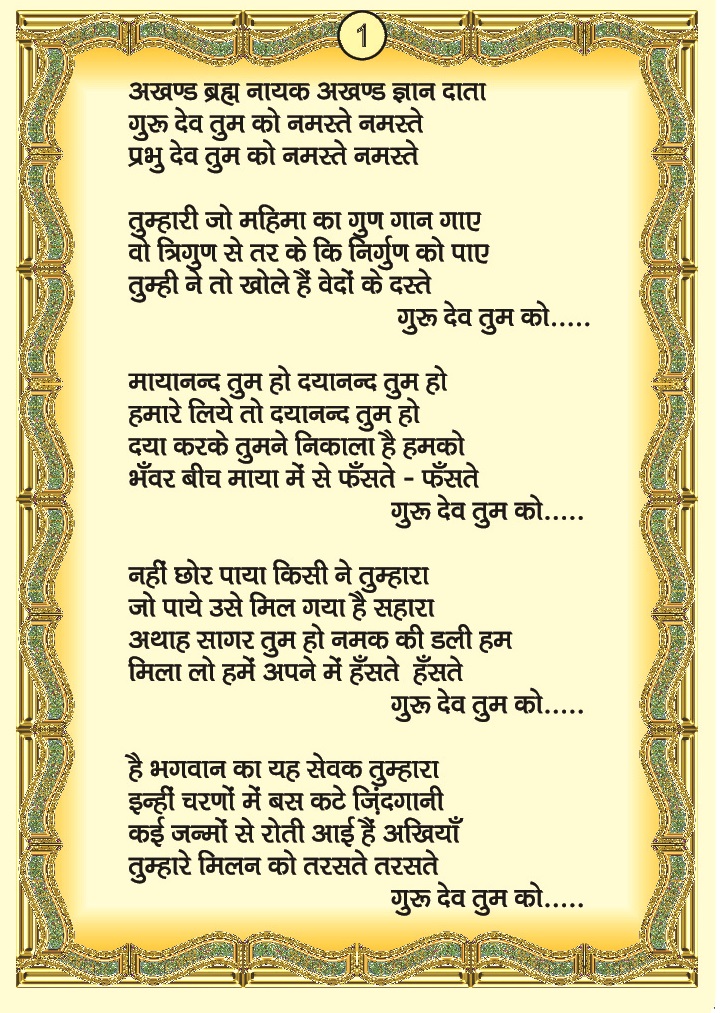 1
अखण्ड ब्रह्म नायक अखण्ड ज्ञान दाता
गुरू देव तुम को नमस्ते नमस्ते
प्रभु देव तुम को नमस्ते नमस्ते
तुम्हारी जो महिमा का गुण गान गाए
वो त्रिगुण से तर के कि निर्गुण को पाए
तुम्ही ने तो खोले हैं वेदों के दस्ते
गुरू देव तुम को.....
मायानन्द तुम हो दयानन्द तुम हो
हमारे लिये तो दयानन्द तुम हो
दया करके तुमने निकाला है हमको
भँवर बीच माया में से फँसते - फँसते
गुरू देव तुम को.....
नहीं छोर पाया किसी ने तुम्हारा
जो पाये उसे मिल गया है सहारा
अथाह सागर तुम हो नमक की डली हम
मिला लो हमें अपने में हँसते हँसते
गुरू देव तुम को.....
है भगवान का यह सेवक तुम्हारा
इन्हीं चरणों में बस कटे ज़िंदगानी
कई जन्मों से रोती आई हैं अखियाँ
तुम्हारे मिलन को तरसते तरसते
गुरू देव तुम को.....